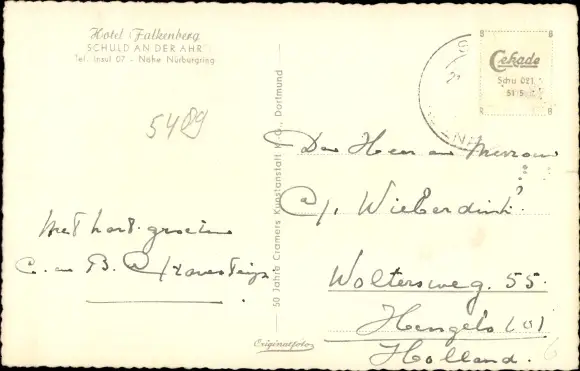 Hotel Falkenberg
SCHULD AN DER AHR
Tel. Insul 67 - Nähe Nürburgring
5489
Met hart. groeten
C. en B.
50 Jahre Cramers Kunstanstalt K.-G., Dortmund
Originalfoto
Cekade
Schu 021
515
De Heer en Mevrouw
Wieberdink
Woltersweg. 55.
Hengelo (O)
Holland.